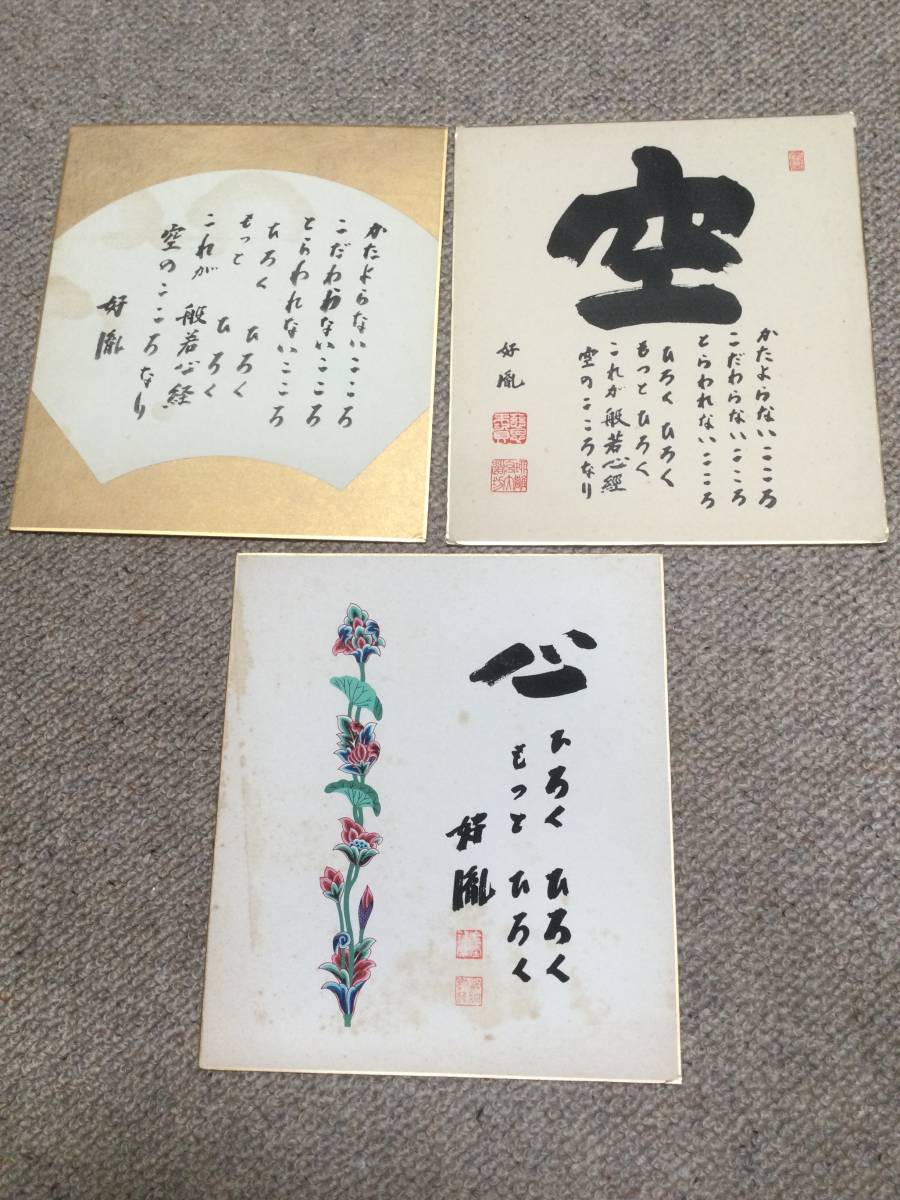 かたよらないこころ
こだわらないこころ
とらわれないこころ
ひろく ひろく
もっと ひろく
これが 般若心経
空のこころなり
好胤
空
かたよらないこころ
こだわらないこころ
とらわれないこころ
ひろく ひろく
もっと ひろく
これが般若心經
空のこころなり
好胤
心
ひろく ひろく
もっと ひろく
好胤